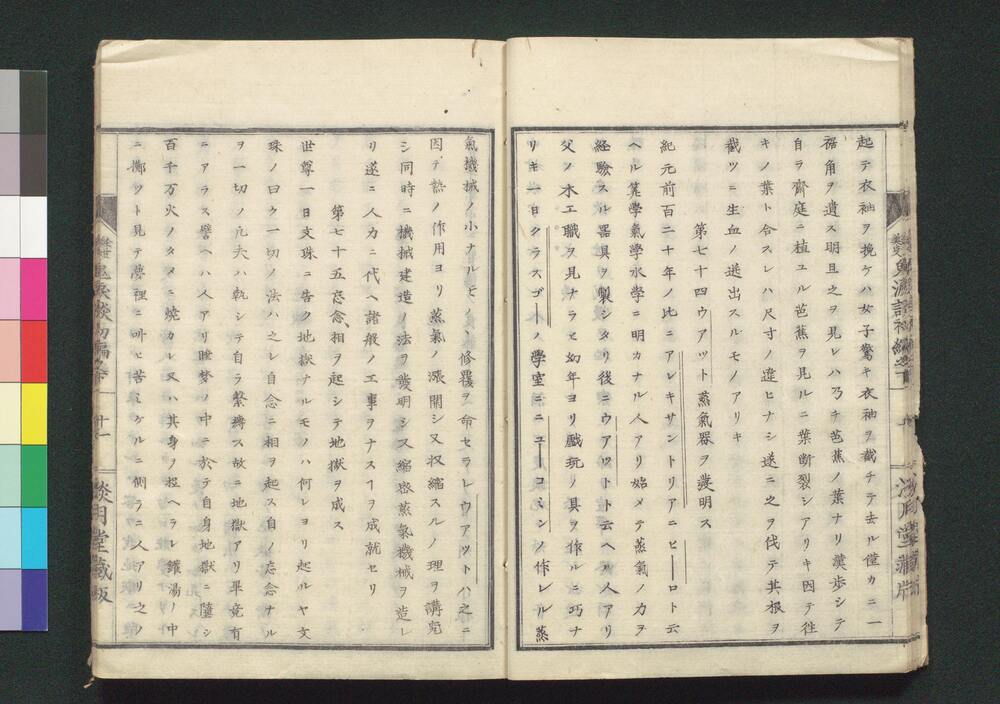 起テ衣袖ヲ挽ケハ女子驚キ衣袖ヲ截チテ去ル僅カニ一
裾角ヲ遺ス明旦之ヲ見レハ乃チ芭蕉ノ葉ナリ漢歩シテ
自ラ齋庭ニ植ユル芭蕉ヲ見ルニ葉断裂シアリキ因テ徃
キノ葉ト合スレハ尺寸ノ違ヒナシ遂ニ之ヲ伐テ其根ヲ
截ツニ生血ノ迸出スルモノアリキ
第七十四ウアツト蒸氣器ヲ發明ス
紀元前百二十年ノ比ニアレキサントリアニヒーロト云
ヘル箕學氣學水学ニ明カナル人アリ始メテ蒸氣ノ力ヲ
経驗スル器具ヲ製シタリ後ニウアツトト云ヘル人アリ
父ノ木工職ヲ見ナラヒ幼年ヨリ戲玩ノ具ヲ作ルニ巧ナ
リキ一日クラスゴーノ學室ニニユーコミンノ作レル蒸
氣機械ノ小ナルモノヽ修覆ヲ命セラレウアツトハ之ニ
因テ熱ノ作用ヨリ蒸氣ノ漲開シ又収縮スルノ理ヲ講究
シ同時ニ機械建造ノ法ヲ發明シ又縮密蒸氣機械ヲ造レ
リ遂ニ人力ニ代ヘ諸般ノ工事ヲナスヿヲ成就セリ
第七十五忘念相ヲ起シテ地獄ヲ成ス
世尊一日文珠ニ告ク地獄ナルモノハ何レヨリ起ルヤ文
珠ノ曰ク一切ノ法ハ之レ自念ニ相ヲ起ス自ノ忘念ナル
ヲ一切ノ凢夫ハ執シテ自ラ繋縛ス故ニ地獄アリ畢竟有
ニアラス譬ヘハ人アリ睡夢ノ中ニ於テ自身地獄ニ墮シ
百千万火ノタメニ焼カレ又ハ其身ヲ投ヘラレ鑊湯ノ中
ニ擲ツト見テ夢裡ニ叫ヒ苦ミケルニ側ラニ人アリ之ノ
初編
十一
談明堂藏版